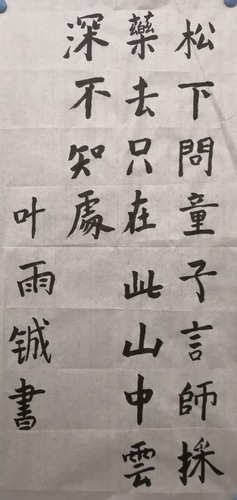 松下問童子言師採
藥去只在此山中雲
深不知處
叶雨铖書